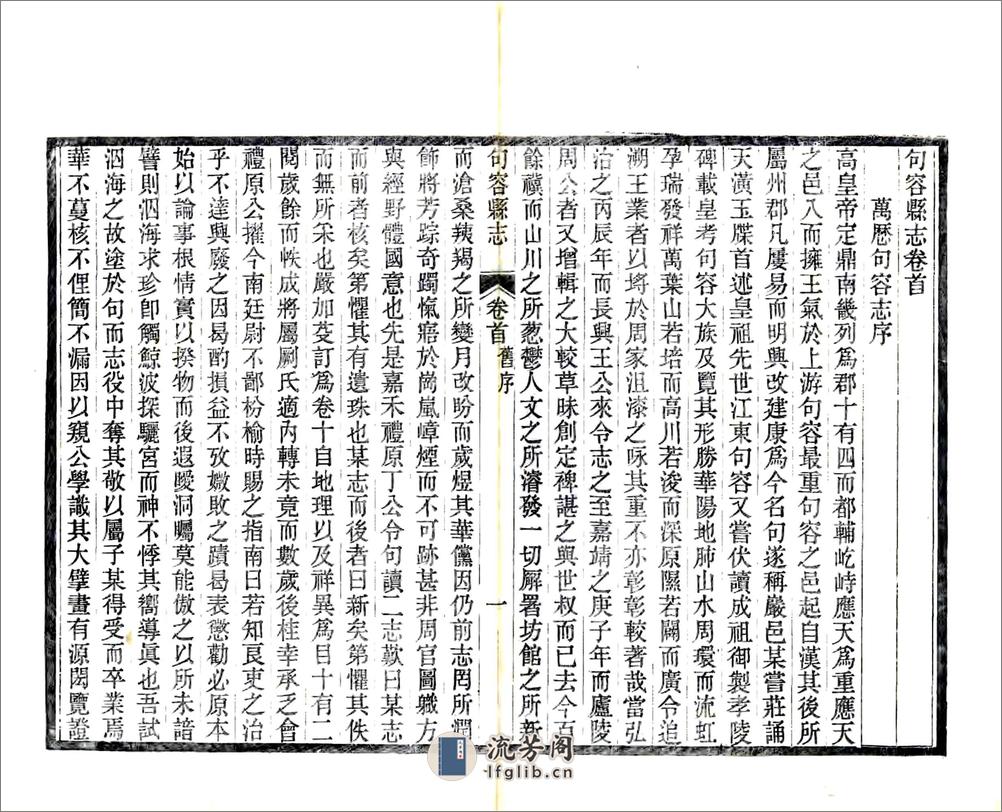 句容縣志卷首
萬歷句容志序
高皇帝定鼎南畿列爲郡十有四而都輔屹峙應天爲重應天
之邑八而擁王氣於上游句容最重句容之邑起自漢其後所
屬州郡凡屢易而明興改建康爲今名句遂稱嚴邑某嘗莊誦
天潢玉牒首述皇祖先世江東句容又嘗伏讀成祖御製孝陵
碑載皇考句容大族及覽其形勝華陽地肺山水周環而流虹
孕瑞發祥萬葉山若培而高川若浚而深原隰若闢而廣令追
溯王業者以埓於周家沮漆之咏其重不亦彰彰較著哉當弘
治之丙辰年而長興王公來令志之至嘉靖之庚子年而廬陵
周公者又增輯之大較草昧創定裨諶之與世叔而已去今百
餘禩而山川之所葱鬱人文之所濬發一切廨署坊館之所新
句容縣志
卷首
舊序
一
而滄桑羠羯之所變月改昐而歲煜其華儻因仍前志罔所潤
飾將芳踪奇躅愾寤於崗嵐嶂煙而不可跡甚非周官圖軄方
與經野體國意也先是嘉禾禮原丁公令句讀二志歎曰某志
而前者核矣第懼其有遺珠也某志而後者曰新矣第懼其佚
而無所釆也嚴加芟訂爲卷十自地理以及祥異爲目十有二
閱歲餘而帙成將屬剞氏適內轉未竟而數歲後桂幸承乏會
禮原公擢今南廷尉不鄙枌榆時賜之指南曰若知良吏之治
乎不達興廢之因曷酌損益不攷媺敗之蹟曷表懲勸必原本
始以論事根情實以揆物而後遐曖洞矚莫能傲之以所未諳
譬則泗海求珍卽觸鯨波探驪宮而神不悸其嚮導眞也吾試
泗海之故塗於句而志役中奪其敬以屬子某得受而卒業焉
華不蔓核不俚簡不漏因以窺公學識其大擘畫有源閎覽證
流芳阁
lfglib.cn